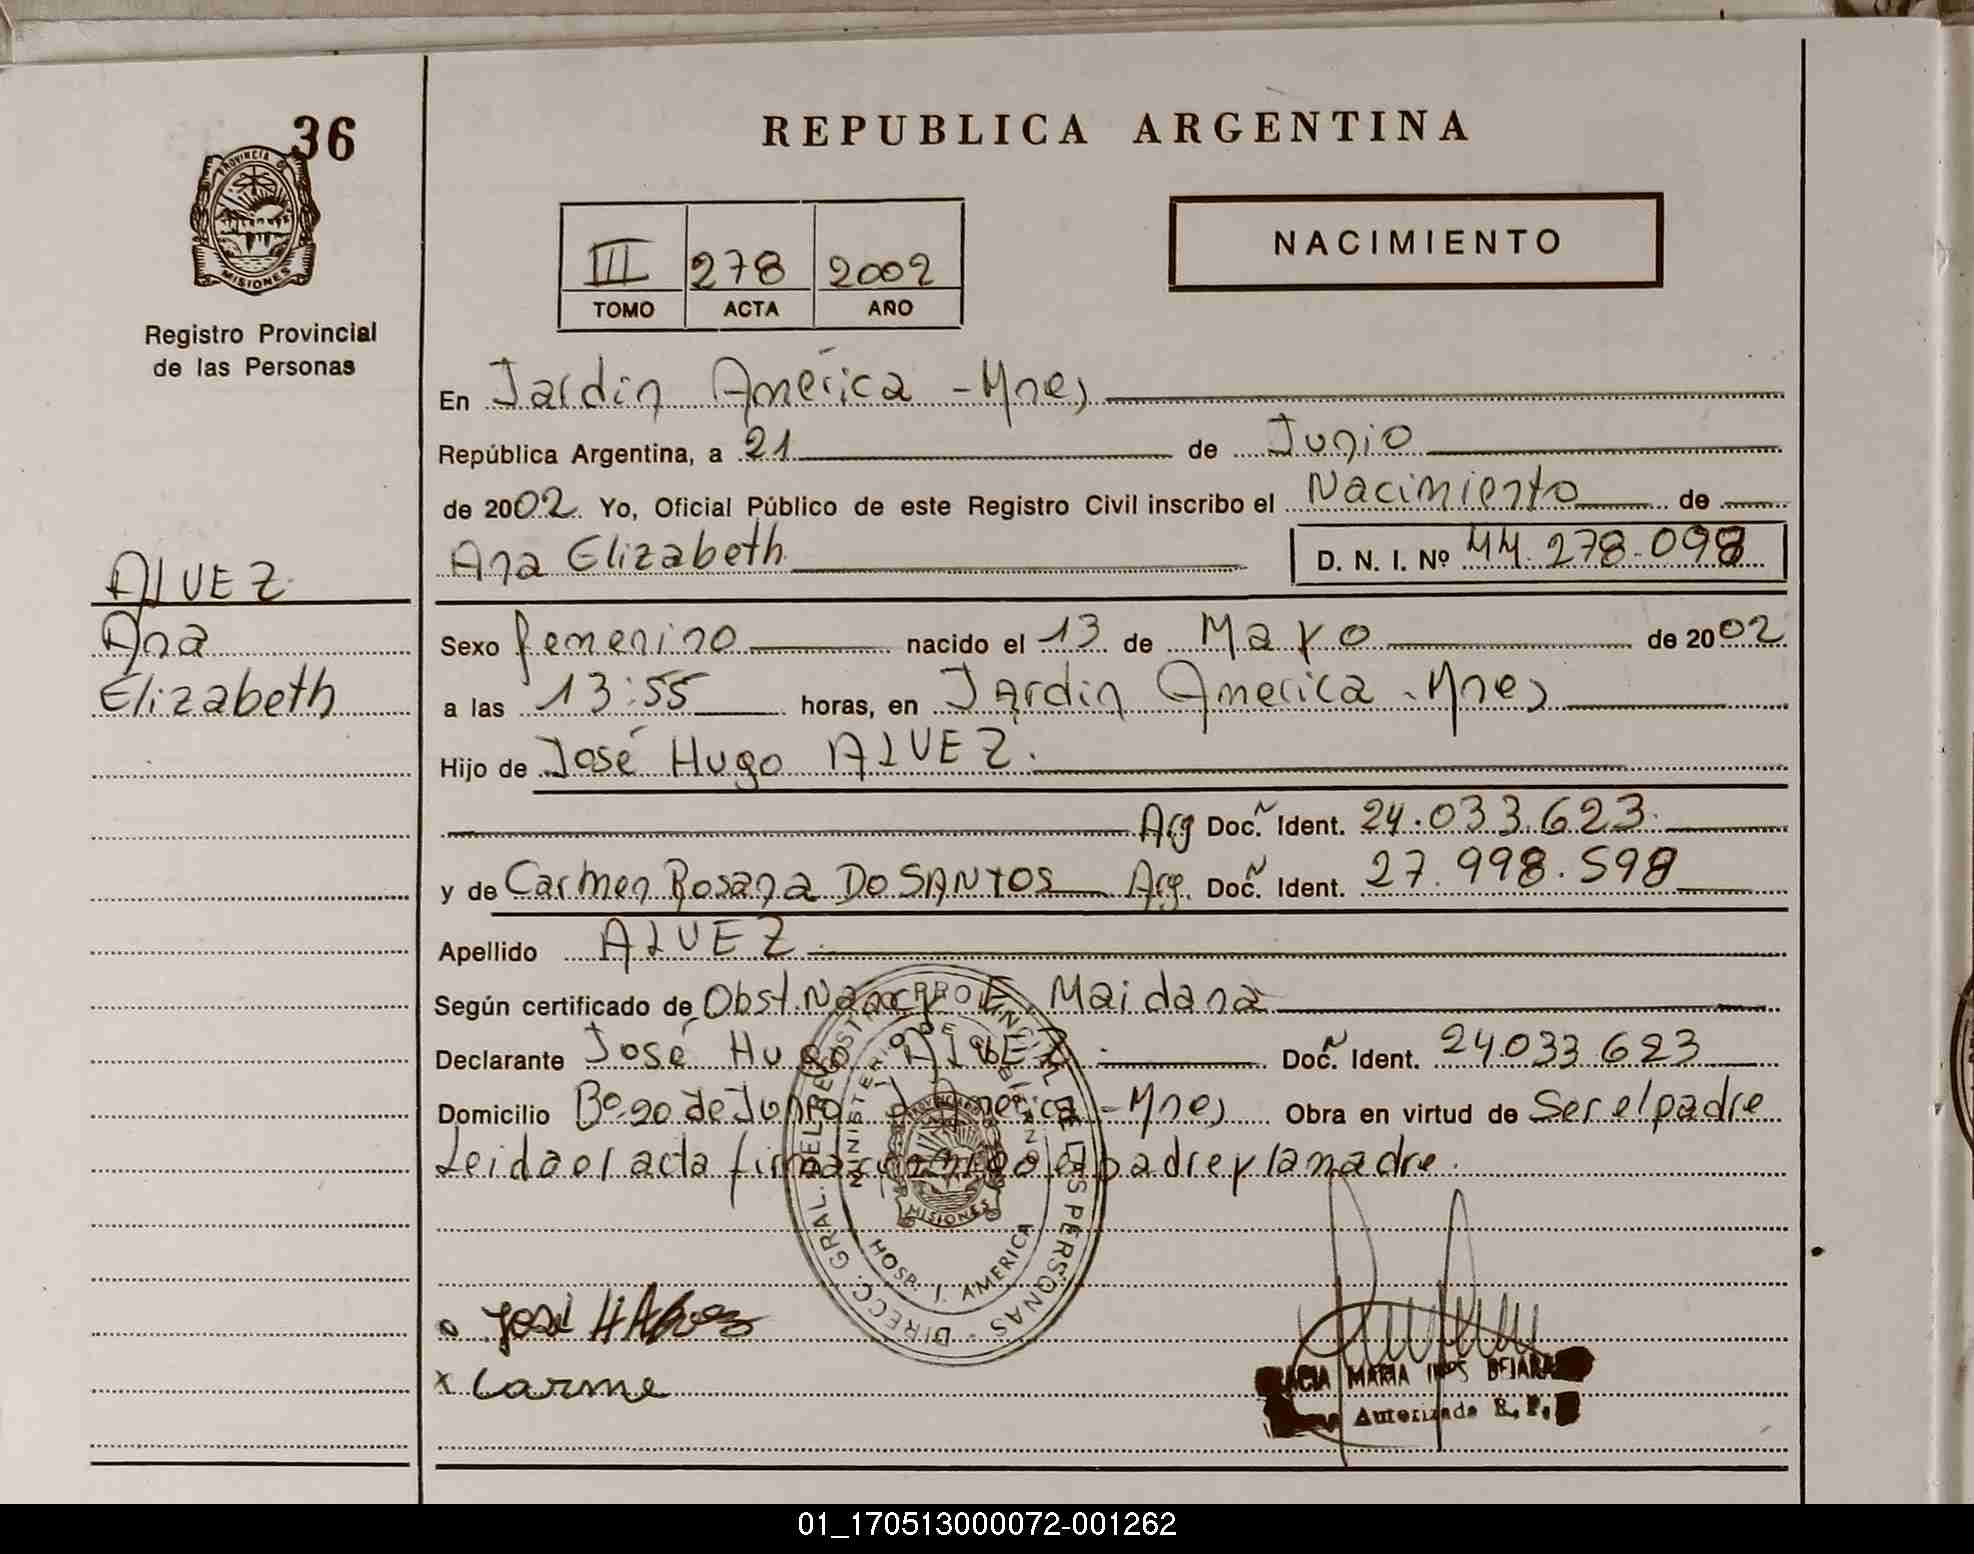 36
REPUBLICA ARGENTINA
PROVINCIA DE
MISIONES
Registro Provincial
de las Personas
III 278 2002
TOMO ACTA AÑO
NACIMIENTO
En Jardin América - Mnes
República Argentina, a 21 de Junio
de 2002 Yo, Oficial Público de este Registro Civil inscribo el Nacimiento de
Ana Elizabeth D. N. I. Nº 44.278.098
ALVEZ
Ana
Elizabeth
Sexo femenino nacido el 13 de Mayo de 2002
a las 13:55 horas, en Jardin America - Mnes
Hijo de José Hugo ALVEZ.
Arg Doc. Ident. 24.033.623.
y de Carmen Rosana DO SANTOS Arg. Doc. Ident. 27.998.598
Apellido ALVEZ
Según certificado de Obst. Nancy E. Maidana
Declarante José Hugo ALVEZ Doc. Ident. 24.033.623
Domicilio Bº 20 de Junio J. America - Mnes Obra en virtud de Ser el padre
Leida el acta firman conmigo el padre y la madre.
DIRECC. GRAL. DEL REGISTRO PROVINCIAL DE LAS PERSONAS
MINISTERIO DE GOBIERNO
MISIONES
HOSP. J. AMERICA
José H Alvez
x Carme
MARIA INES BEJARA
Autorizada R. P.
01_170513000072-001262